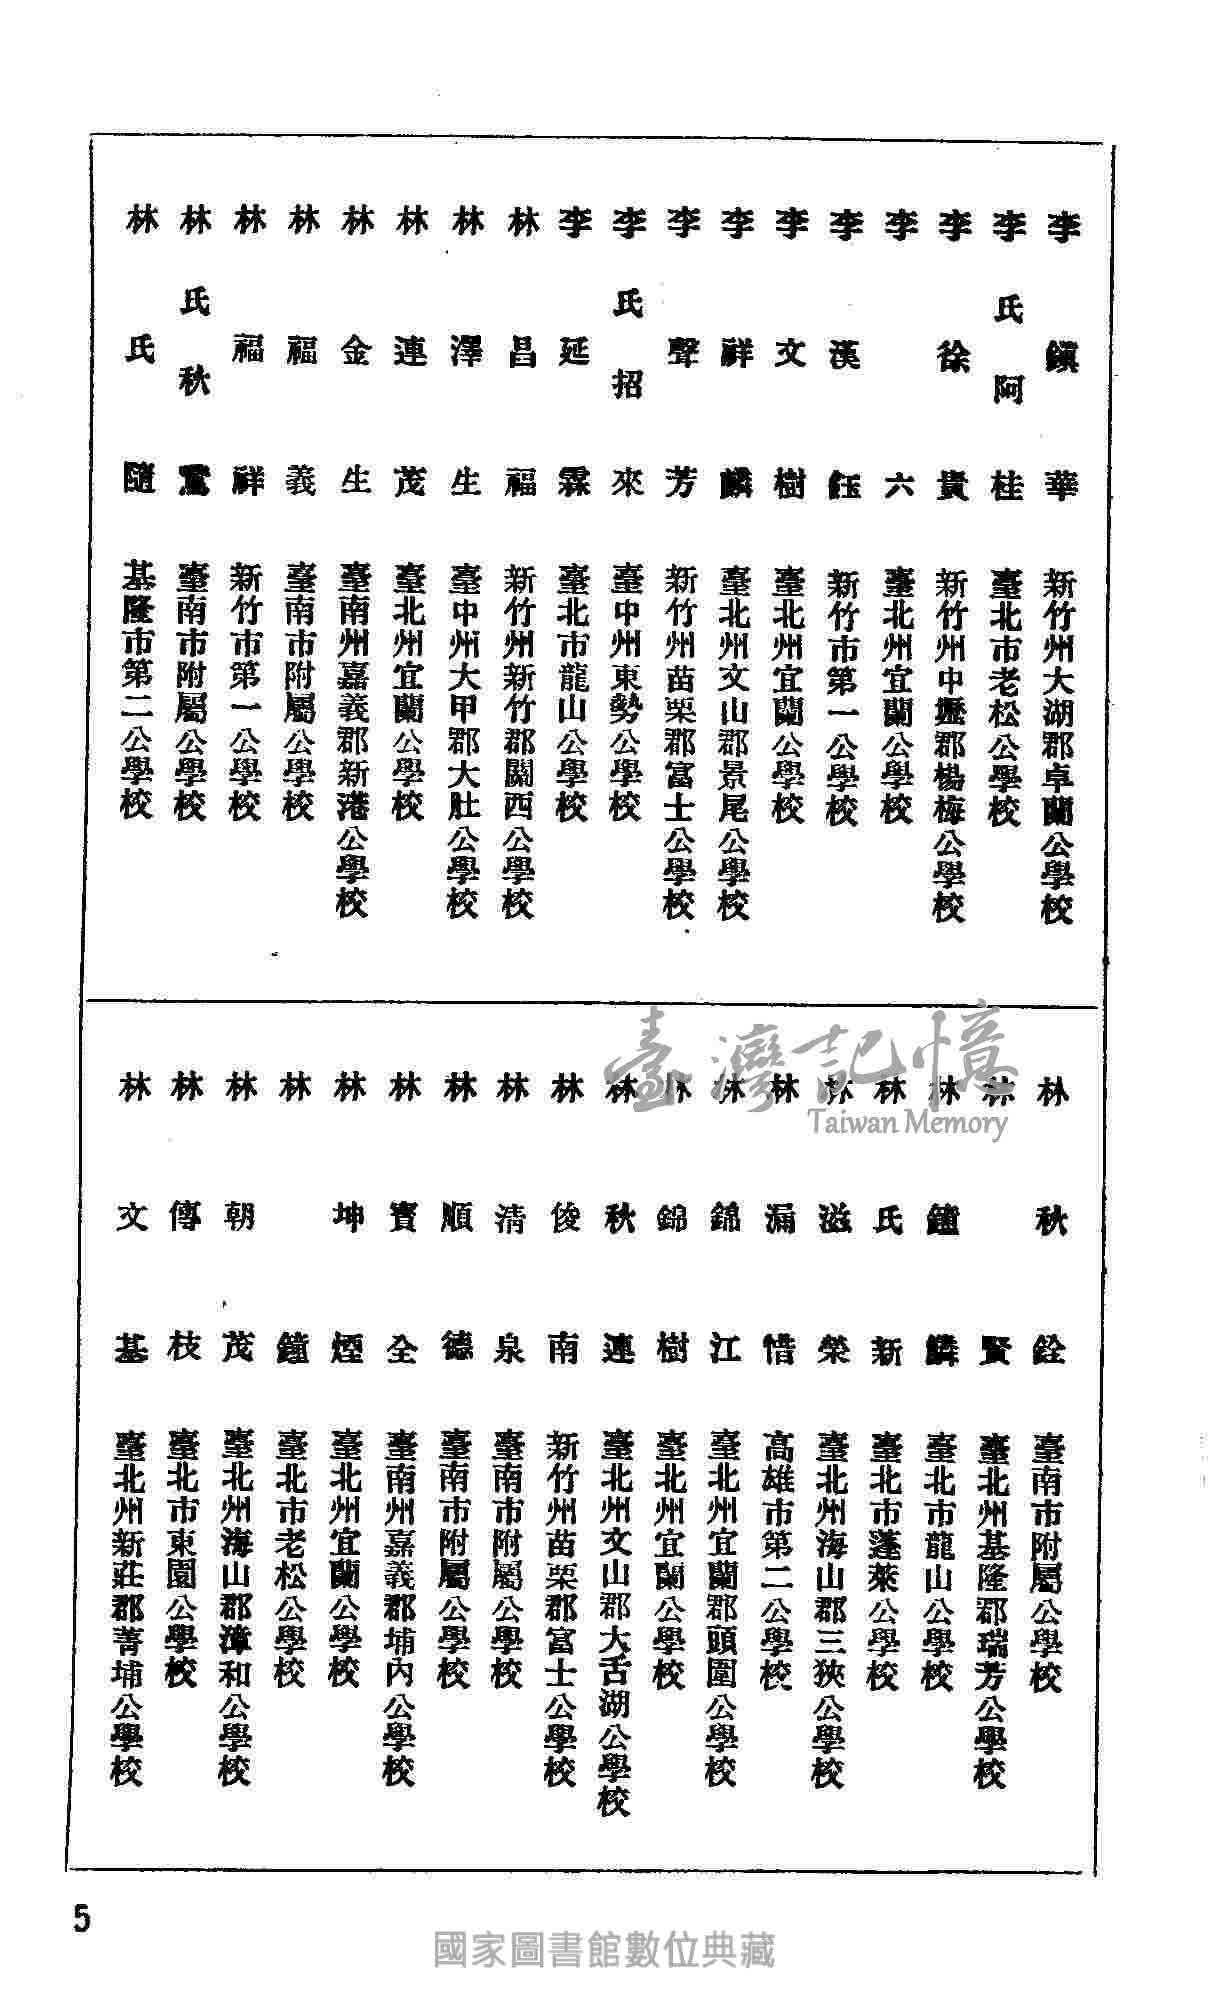 李鎭華 新竹州大湖郡卓蘭公學校
李氏阿桂 臺北市老松公學校
李徐貴 新竹州中壢郡楊梅公學校
李六 臺北州宜蘭公學校
李漢鈺 新竹市第一公學校
李文樹 臺北州宜蘭公學校
李祥麟 臺北州文山郡景尾公學校
李聲芳 新竹州苗栗郡富士公學校
李氏招來 臺中州東勢公學校
李延霖 臺北市龍山公學校
林昌福 新竹州新竹郡關西公學校
林澤生 臺中州大甲郡大肚公學校
林連茂 臺北州宜蘭公學校
林金生 臺南州嘉義郡新港公學校
林福義 臺南市附屬公學校
林福祥 新竹市第一公學校
林氏秋 臺南市附屬公學校
林氏隨 基隆市第二公學校
林秋銓 臺南市附屬公學校
林賢 臺北州基隆郡瑞芳公學校
林鐘麟 臺北市龍山公學校
林氏新 臺北市蓬萊公學校
林滋榮 臺北州海山郡三狹公學校
林漏惜 高雄市第二公學校
林錦江 臺北州宜蘭郡頭圍公學校
林錦樹 臺北州宜蘭公學校
林秋連 臺北州文山郡大舌湖公學校
林俊南 新竹州苗栗郡富士公學校
林清泉 臺南市附屬公學校
林順德 臺南市附屬公學校
林寶全 臺南州嘉義郡埔內公學校
林坤煙 臺北州宜蘭公學校
林鐘 臺北市老松公學校
林朝茂 臺北州海山郡漳和公學校
林傳枝 臺北市東園公學校
林文基 臺北州新莊郡菁埔公學校
臺灣記憶
Taiwan Memory
5
國家圖書館數位典藏